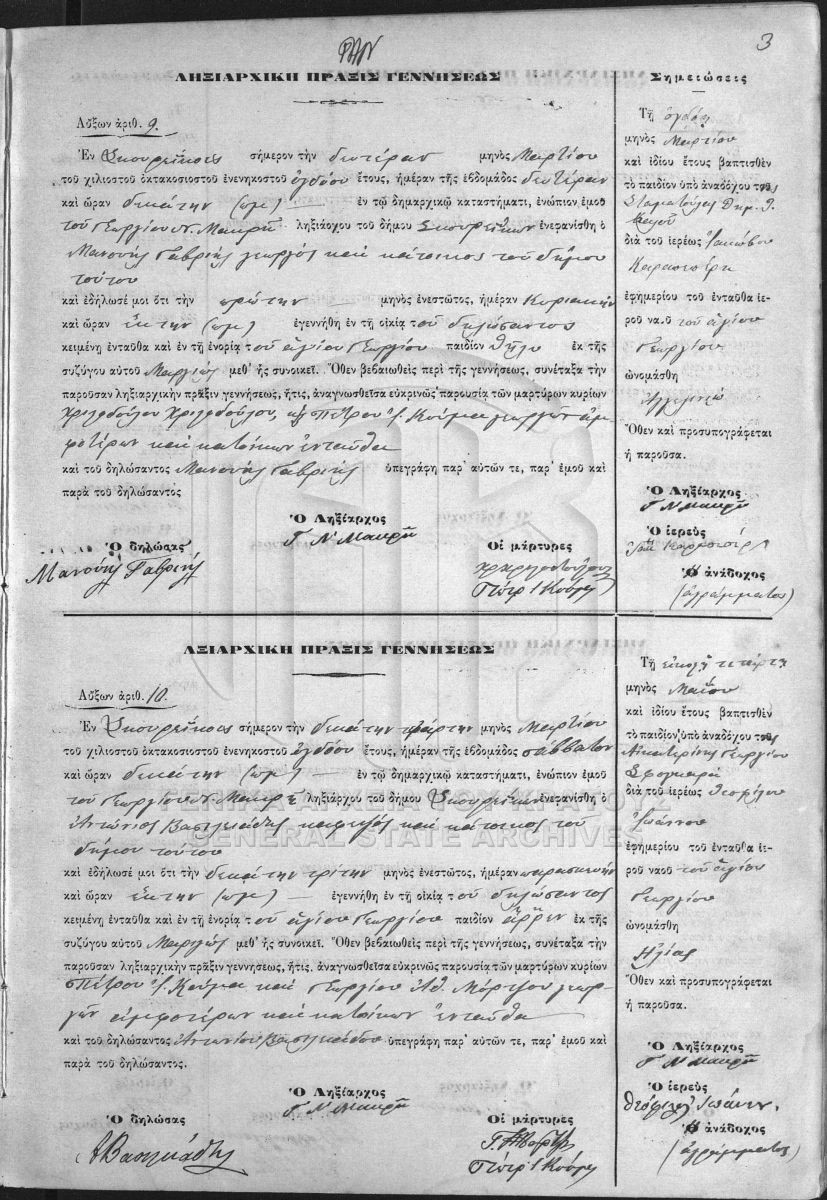 3
ΛΗΞΙΑΡΧΙΚΗ ΠΡΑΞΙΣ ΓΕΝΝΗΣΕΩΣ
Αὔξων ἀριθ. 9.
Ἐν Σκουρείκοις σήμερον τὴν δευτέραν μηνὸς Μαρτίου
τοῦ χιλιοστοῦ ὀκτακοσιοστοῦ ἐνενηκοστοῦ ὀγδόου ἔτους, ἡμέραν τῆς ἑβδομάδος δευτέραν
καὶ ὥραν δεκάτην (πμ) — ἐν τῷ δημαρχικῷ καταστήματι, ἐνώπιον ἐμοῦ
τοῦ Γεωργίου Ν. Μακρῆ ληξιάρχου τοῦ δήμου ἐνεφανίσθη ὁ
Μανουὴλ Γαβριὴλ γεωργὸς καὶ κάτοικος τοῦ δήμου
τούτου
καὶ ἐδήλωσέ μοι ὅτι τὴν πρώτην — μηνὸς ἐνεστῶτος, ἡμέραν Κυριακὴν
καὶ ὥραν ἕκτην (πμ) ἐγεννήθη ἐν τῇ οἰκίᾳ τοῦ δηλώσαντος
κειμένῃ ἐνταῦθα καὶ ἐν τῇ ἐνορίᾳ τοῦ ἁγίου Γεωργίου παιδίον θῆλυ ἐκ τῆς
συζύγου αὐτοῦ Μαριγῶς μεθ' ἧς συνοικεῖ. Ὅθεν βεβαιωθεὶς περὶ τῆς γεννήσεως, συνέταξα τὴν
παροῦσαν ληξιαρχικὴν πρᾶξιν γεννήσεως, ἥτις, ἀναγνωσθεῖσα εὐκρινῶς παρουσίᾳ τῶν μαρτύρων κυρίων
καὶ Πέτρου Ι. Κούμα γεωργῶν ἀμ-
φοτέρων καὶ κατοίκων ἐνταῦθα
καὶ τοῦ δηλώσαντος Μανουὴλ Γαβριὴλ ὑπεγράφη παρ' αὐτῶν τε, παρ' ἐμοῦ καὶ
παρὰ τοῦ δηλώσαντος
Ὁ Ληξίαρχος
Γ Ν Μακρῆ
Ὁ δηλώσας
Μανουήλ Γαβριήλ
Οἱ μάρτυρες
Πέτρ Ι Κούμα
Σημειώσεις
Τῇ ὀγδόῃ
μηνὸς Μαρτίου
καὶ ἰδίου ἔτους βαπτισθὲν
τὸ παιδίον ὑπὸ ἀναδόχου τῆς
Σταματούλας Δημ. Ι.
διὰ τοῦ ἱερέως Ἰακώβου
ἐφημερίου τοῦ ἐνταῦθα ἱε-
ροῦ ναοῦ τοῦ ἁγίου
Γεωργίου
ὠνομάσθη
Ἀγγελικὼ
Ὅθεν καὶ προσυπογράφεται
ἡ παροῦσα.
Ὁ Ληξίαρχος
Γ Ν Μακρῆ
Ὁ ἱερεὺς
Ὁ ἀνάδοχος
(ἀγράμματος)
ΑΞΙΑΡΧΙΚΗ ΠΡΑΞΙΣ ΓΕΝΝΗΣΕΩΣ
Αὔξων ἀριθ. 10.
Ἐν Σκουρείκοις σήμερον τὴν δεκάτην τετάρτην μηνὸς Μαρτίου
τοῦ χιλιοστοῦ ὀκτακοσιοστοῦ ἐνενηκοστοῦ ὀγδόου ἔτους, ἡμέραν τῆς ἑβδομάδος σάββατον
καὶ ὥραν δεκάτην (πμ) — ἐν τῷ δημαρχικῷ καταστήματι, ἐνώπιον ἐμοῦ
τοῦ Γεωργίου Ν. Μακρῆ ληξιάρχου τοῦ δήμου ἐνεφανίσθη ὁ
Ἀντώνιος Βασιλειάδης καὶ κάτοικος τοῦ
δήμου τούτου
καὶ ἐδήλωσέ μοι ὅτι τὴν δεκάτην τρίτην μηνὸς ἐνεστῶτος, ἡμέραν παρασκευὴν
καὶ ὥραν ἕκτην (πμ) — ἐγεννήθη ἐν τῇ οἰκίᾳ τοῦ δηλώσαντος
κειμένῃ ἐνταῦθα καὶ ἐν τῇ ἐνορίᾳ τοῦ ἁγίου Γεωργίου παιδίον ἄρρεν ἐκ τῆς
συζύγου αὐτοῦ Μαριγῶς μεθ' ἧς συνοικεῖ. Ὅθεν βεβαιωθεὶς περὶ τῆς γεννήσεως, συνέταξα τὴν
παροῦσαν ληξιαρχικὴν πρᾶξιν γεννήσεως, ἥτις, ἀναγνωσθεῖσα εὐκρινῶς παρουσίᾳ τῶν μαρτύρων κυρίων
Πέτρου Ι. Κούμα καὶ Γεωργίου Ἀθ. Μόρτζου γεωρ-
γῶν ἀμφοτέρων καὶ κατοίκων ἐνταῦθα
καὶ τοῦ δηλώσαντος Ἀντωνίου Βασιλειάδου ὑπεγράφη παρ' αὐτῶν τε, παρ' ἐμοῦ καὶ
παρὰ τοῦ δηλώσαντος.
Ὁ Ληξίαρχος
Γ Ν Μακρῆ
Ὁ δηλώσας
Οἱ μάρτυρες
Πέτρ Ι Κούμα
Τῇ εἰκοστῇ τετάρτῃ
μηνὸς Μαΐου
καὶ ἰδίου ἔτους βαπτισθὲν
τὸ παιδίον ὑπὸ ἀναδόχου τῆς
Αἰκατερίνης Γεωργίου
διὰ τοῦ ἱερέως Θεοφίλου
Ἰωάννου
ἐφημερίου τοῦ ἐνταῦθα ἱε-
ροῦ ναοῦ τοῦ ἁγίου
Γεωργίου
ὠνομάσθη
Ηλίας
Ὅθεν καὶ προσυπογράφεται
ἡ παροῦσα.
Ὁ Ληξίαρχος
Γ Ν Μακρῆ
Ὁ ἱερεὺς
Ὁ ἀνάδοχος
(ἀγράμματος)
ΓΕΝΙΚΑ ΑΡΧΕΙΑ ΤΟΥ ΚΡΑΤΟΥΣ
GENERAL STATE ARCHIVES